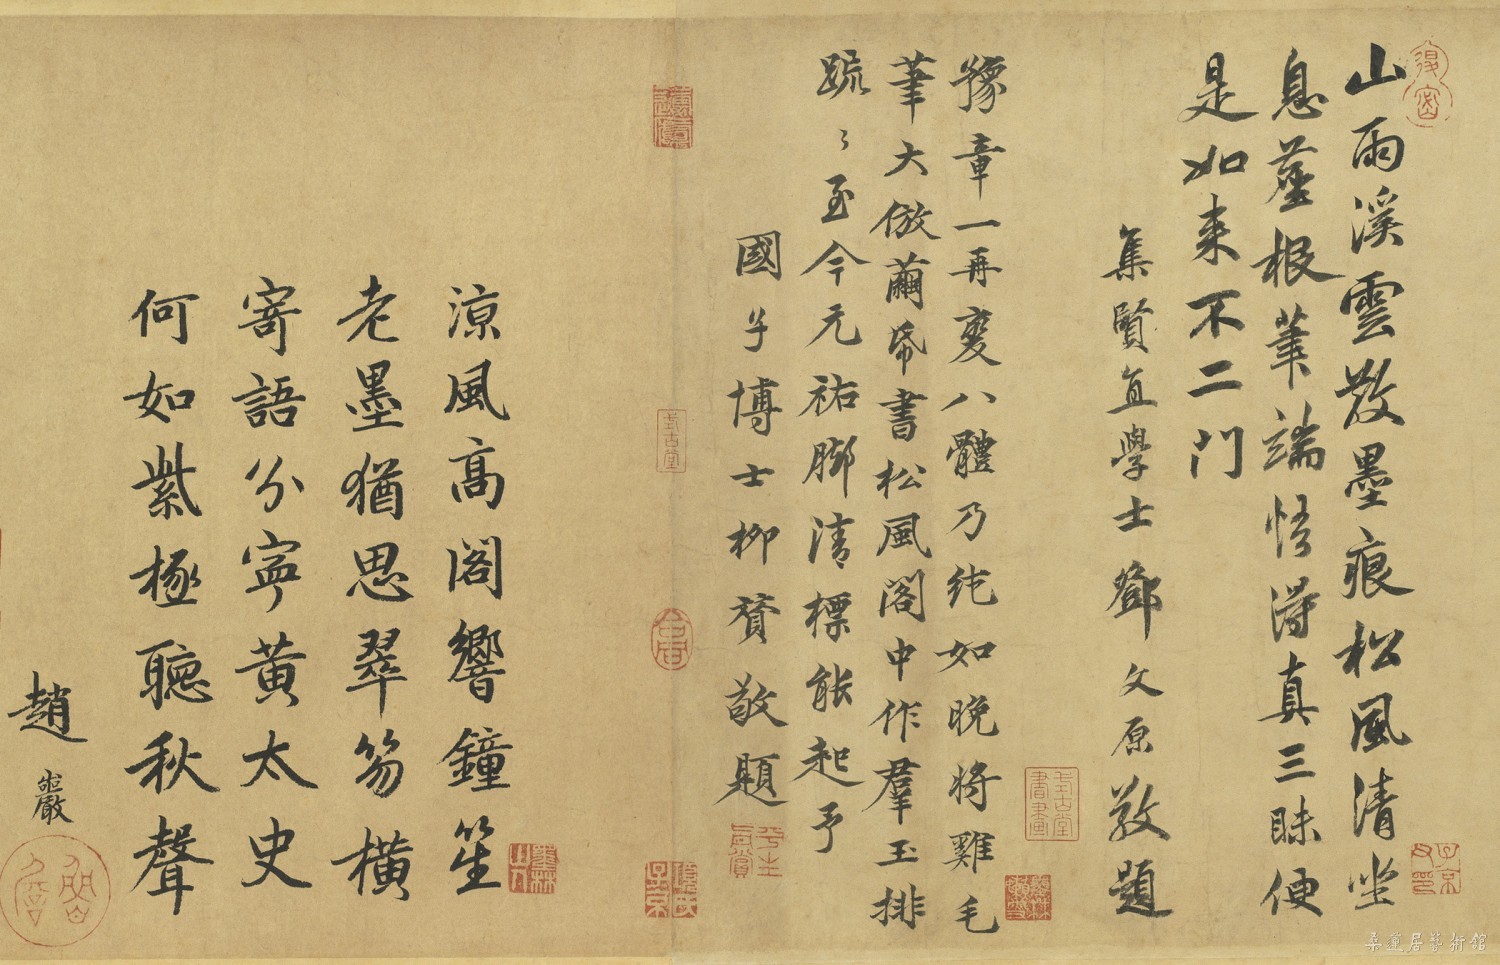 山雨溪雲散墨痕松風清坐
息塵根筆端悟得真三昧便
是如来不二門
集賢直學士鄧文原敬題
豫章一再變八體乃純如晚將雞毛
筆大倣繭帋書松風閣中作羣玉排
疏〻至今元祐脚清標能起予
國子博士柳贊敬題
涼風高閣響鐘笙
老墨猶思翠笏橫
寄語分寧黃太史
何如紫極聽秋聲
趙巖
桑蓮居藝術館